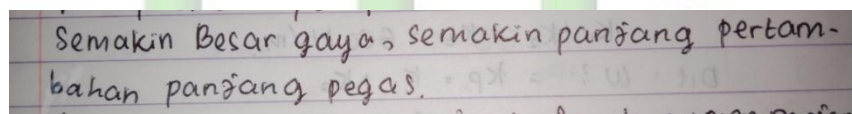 Semakin Besar gaya, semakin panjang pertam-
bahan panjang pegas.